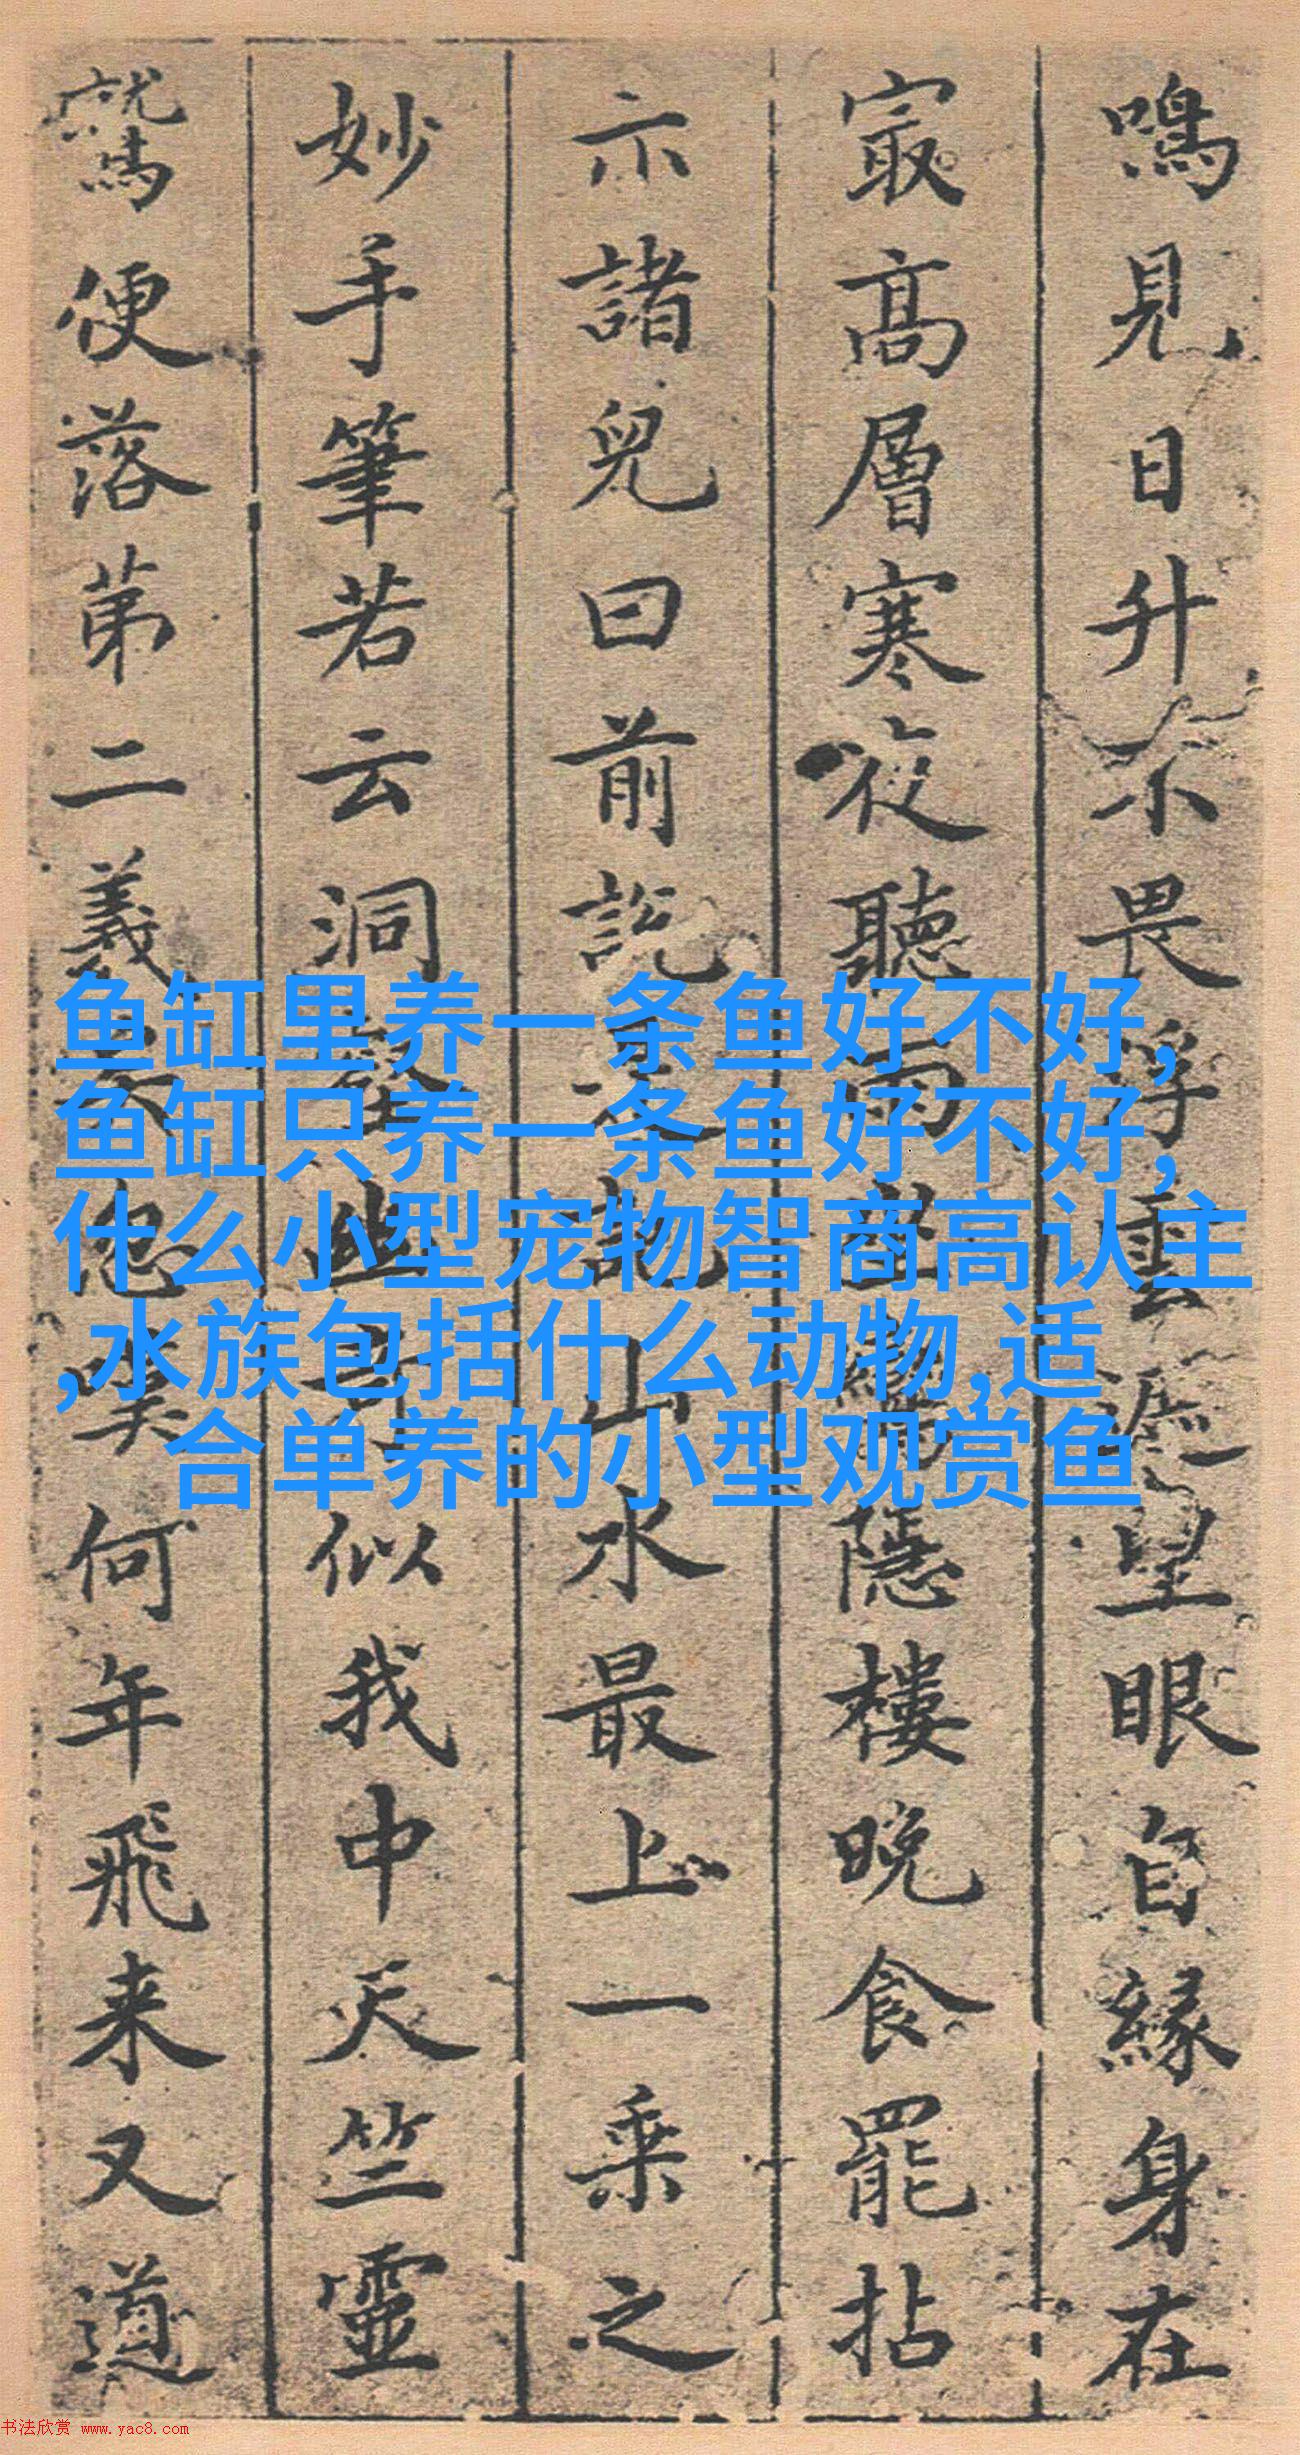 鳴見日升不畏浮雲遮望眼自緣身在
寂高層寒夜聽雨隱樓晚食罷拈
示諸兒曰前說記山水最上一乘之
妙手筆若云洞幽似我中天竺靈
鷲便落第二義忽嘆何年飛来又道
鱼缸里养一条鱼好不好,
鱼缸只养一条鱼好不好,
什么小型宠物智商高认主
,水族包括什么动物,适
合单养的小型观赏鱼
书法欣赏 www.yac8.com